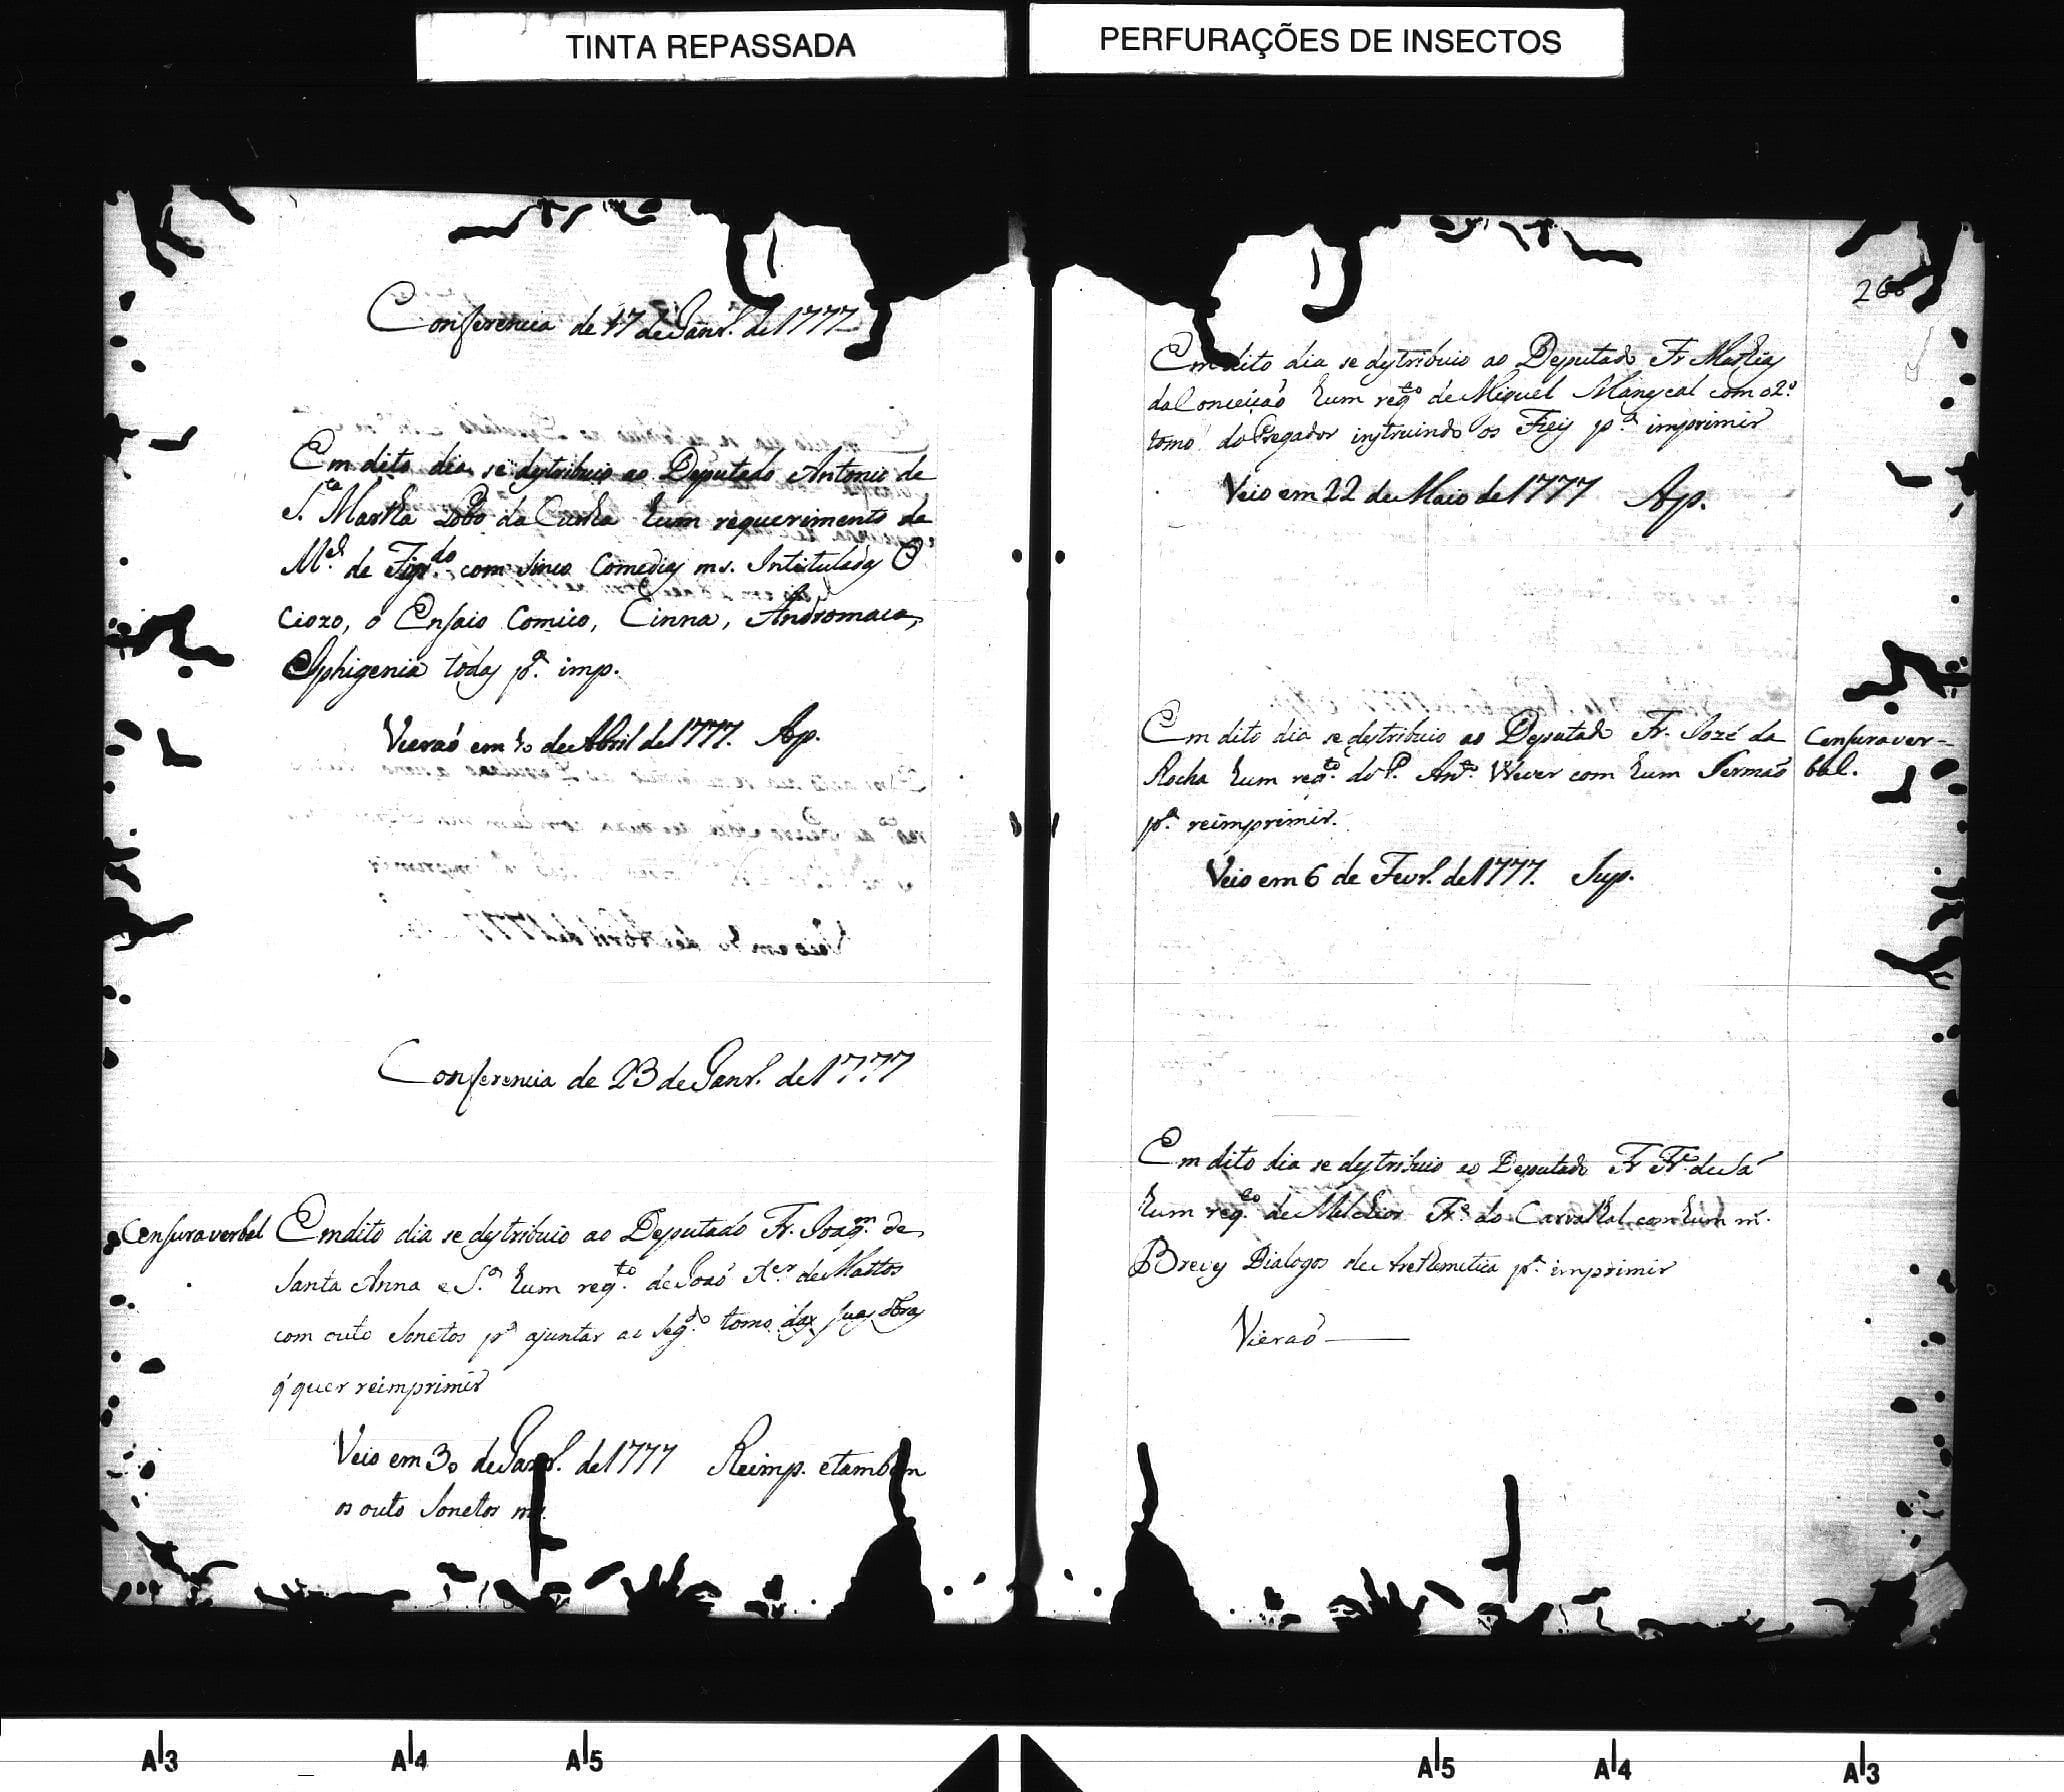 TINTA REPASSADA
PERFURAÇÕES DE INSECTOS
Conferencia de 17 de Janr.º de 1777
Em dito dia se destribuio ao Deputado Antonio de
S.ta Martha Lobo da Cunha hum requerimento de
M.el de Figr.do com sinco Comedias ms. Intituladas O
Ciozo, o Ensaio Comico, Cinna, Andromaca,
Iphigenia todas p.ª imp.
Vieraó em 10 de Abril de 1777. Ap.
Conferencia de 23 de Janr.º de 1777
Censura verbal
Em dito dia se destribuio ao Deputado Fr. Joaq.m de
Santa Anna e S.ª hum reqt.º de Joaó X.er de Mattos
com outo Sonetos p.ª ajuntar ao Seg.do tomo das suas obras
q' quer reimprimir
Veio em 30 de Janr.º de 1777 Reimp. e tambem
os outo Sonetos ms.
260
Em dito dia se destribuio ao Deputado Fr Mathias
da Conceicaó hum reqt.º de Miguel Manescal com o 2.º
tomo do Pregador instruindo os Fieis p.ª imprimir
Veio em 22 de Maio de 1777 Ap.
Em dito dia se destribuio ao Deputado Fr. Jozé da
Rocha hum reqt.º do P. Ant.º Wever com hum Sermaó
p.ª reimprimir.
Censura ver-
bal.
Veio em 6 de Fevr.º de 1777. Sup.
Em dito dia se destribuio ao Deputado Fr Fr.º de Sá
hum reqt.º de Melchior Fr.º do Carvalhal com hum m.
Breves Dialogos de Arethmetica p.ª imprimir
Vieraó
A3
A4
A5
A5
A4
A3